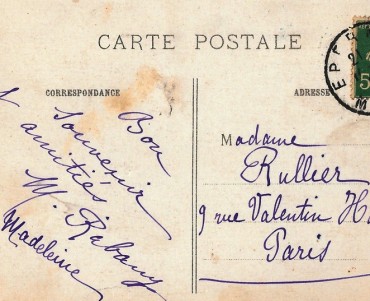 CARTE POSTALE
CORRESPONDANCE
ADRESSE
Bon
Souvenir
d'amitiés
M. Rabany
Madeleine
Madame
Rullier
9 rue Valentin H
Paris
EPER
21
5
M